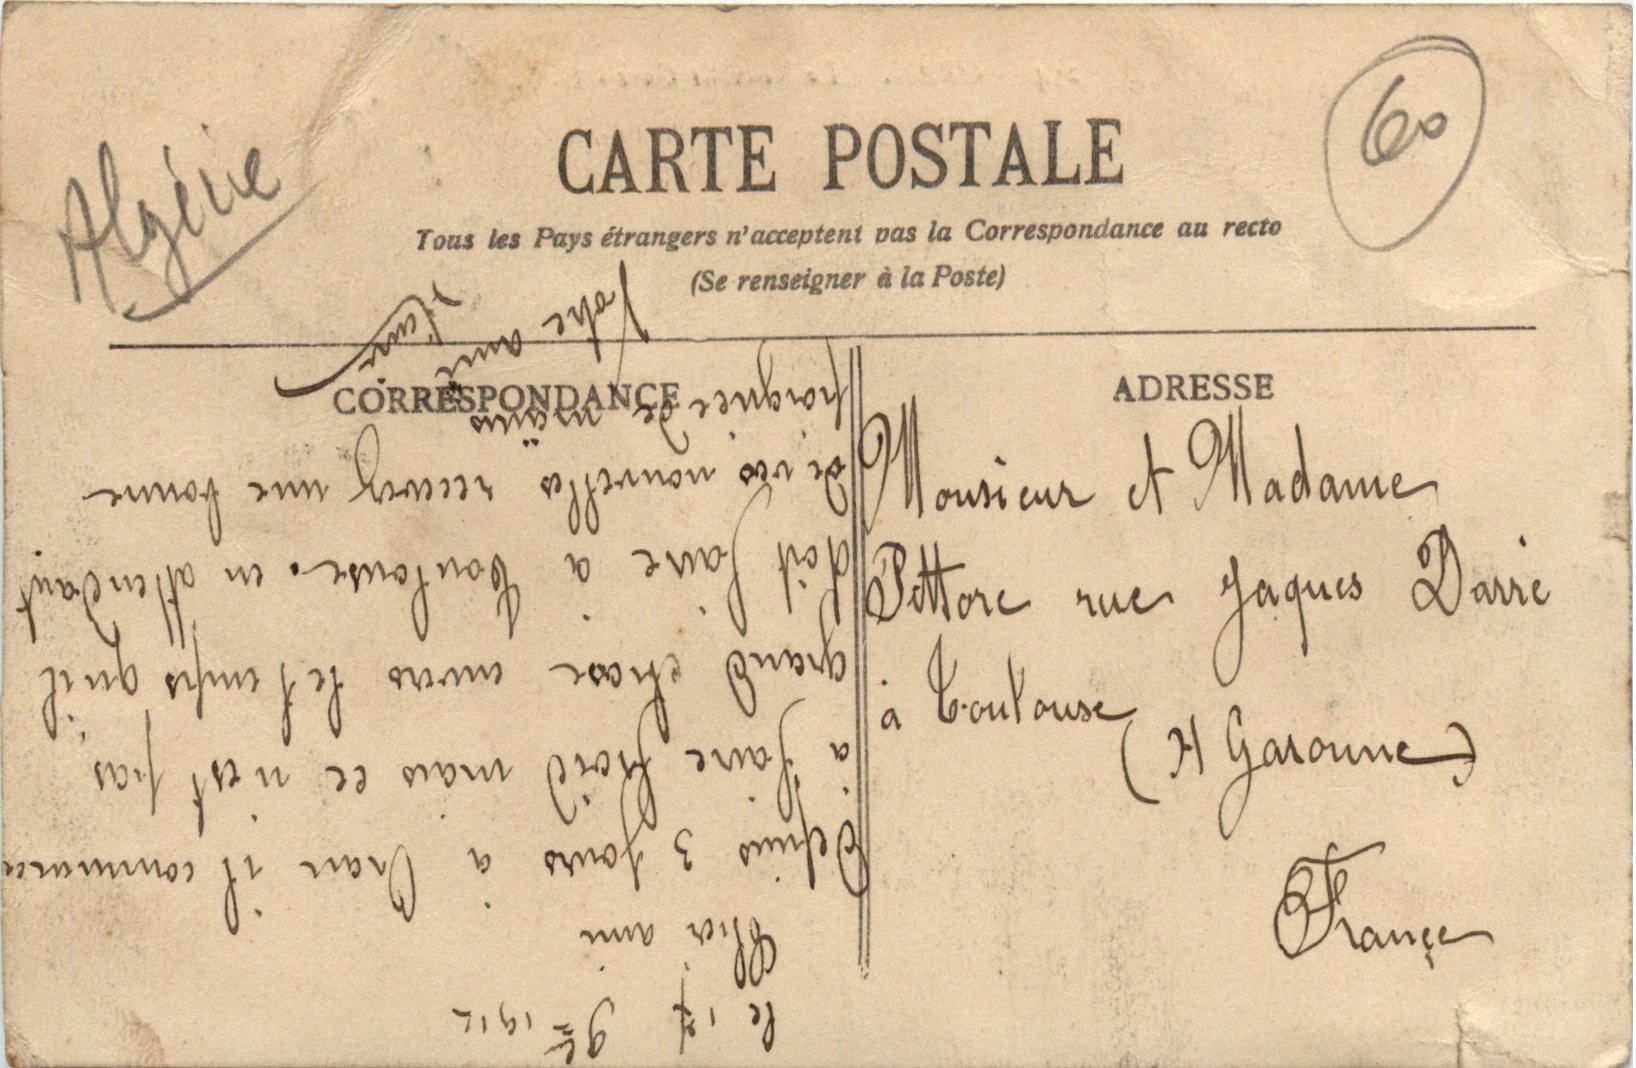 Algérie
60
CARTE POSTALE
Tous les Pays étrangers n'acceptent pas la Correspondance au recto
(Se renseigner à la Poste)
CORRESPONDANCE
le 17 9bre 1912
Cher ami
Depuis 3 jours à Oran il commence
à faire froid mais ce n'est pas
grand chose envers le temps qu'il
doit faire à Toulouse. en attendant
de vos nouvelles recevez une bonne
poignée de mains
Votre ami
ADRESSE
Monsieur et Madame
Pittore rue Jaques Darré
à Toulouse
(H Garonne)
France